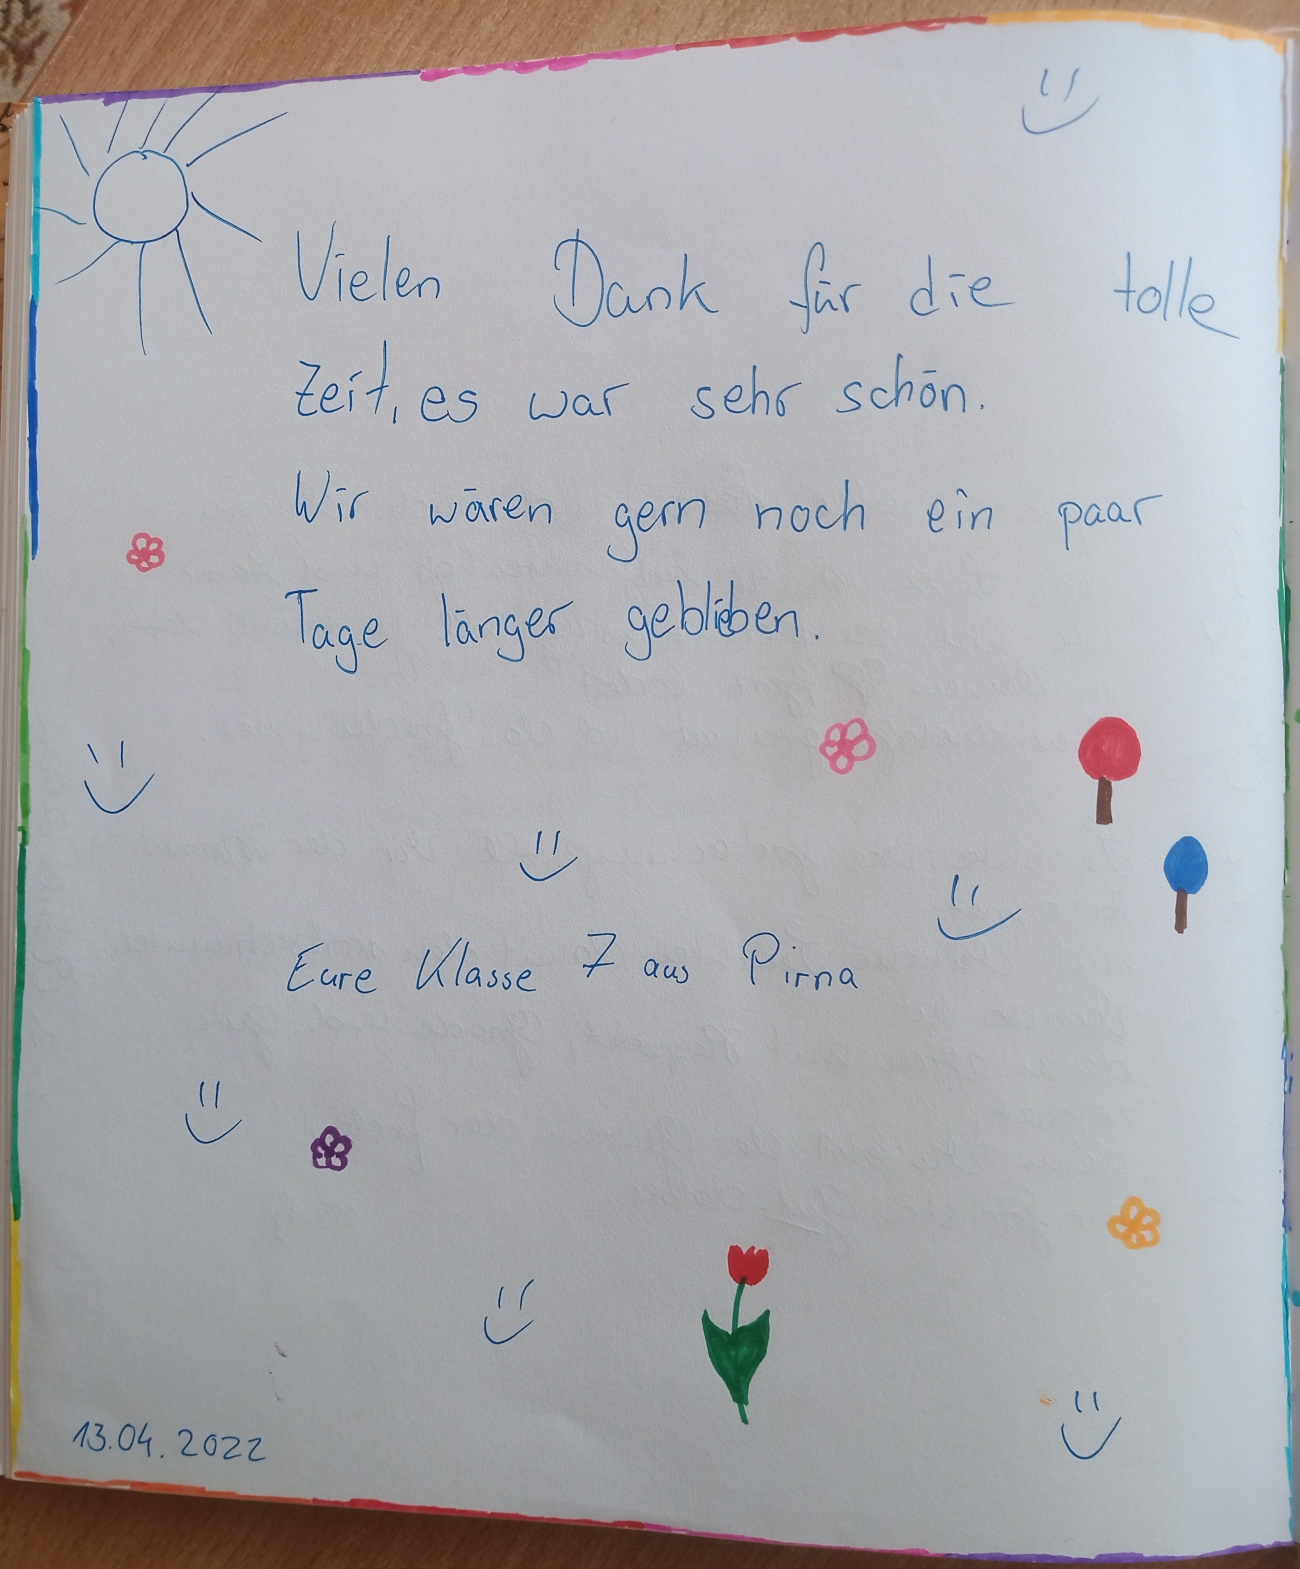 Vielen Dank für die tolle
Zeit, es war sehr schön.
Wir wären gern noch ein paar
Tage länger geblieben.
Eure Klasse 7 aus Pirna
13.04.2022